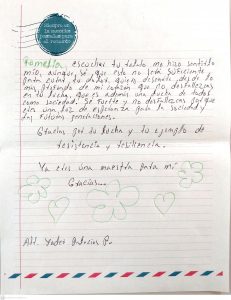 Siempre en
la memoria
pomadas para
el recuerdo
Pomelia escuchar tu relato me hizo sentirlo
mio, aunque sé que esto no será suficiente
para evitar tu dolor, quiero desearte desde lo
mas profundo de mi corazón que no desfallezcas
en tu lucha, que es ademas una lucha de todos
como sociedad. Se fuerte y no desfallezcas porque
eres una luz de esperanza para la sociedad y
las futuras generaciones.
Gracias por tu lucha y tu ejemplo de
resistencia y resiliencia.
Ya eres una maestra para mi
Gracias...
Att. Yudes Palacios P.